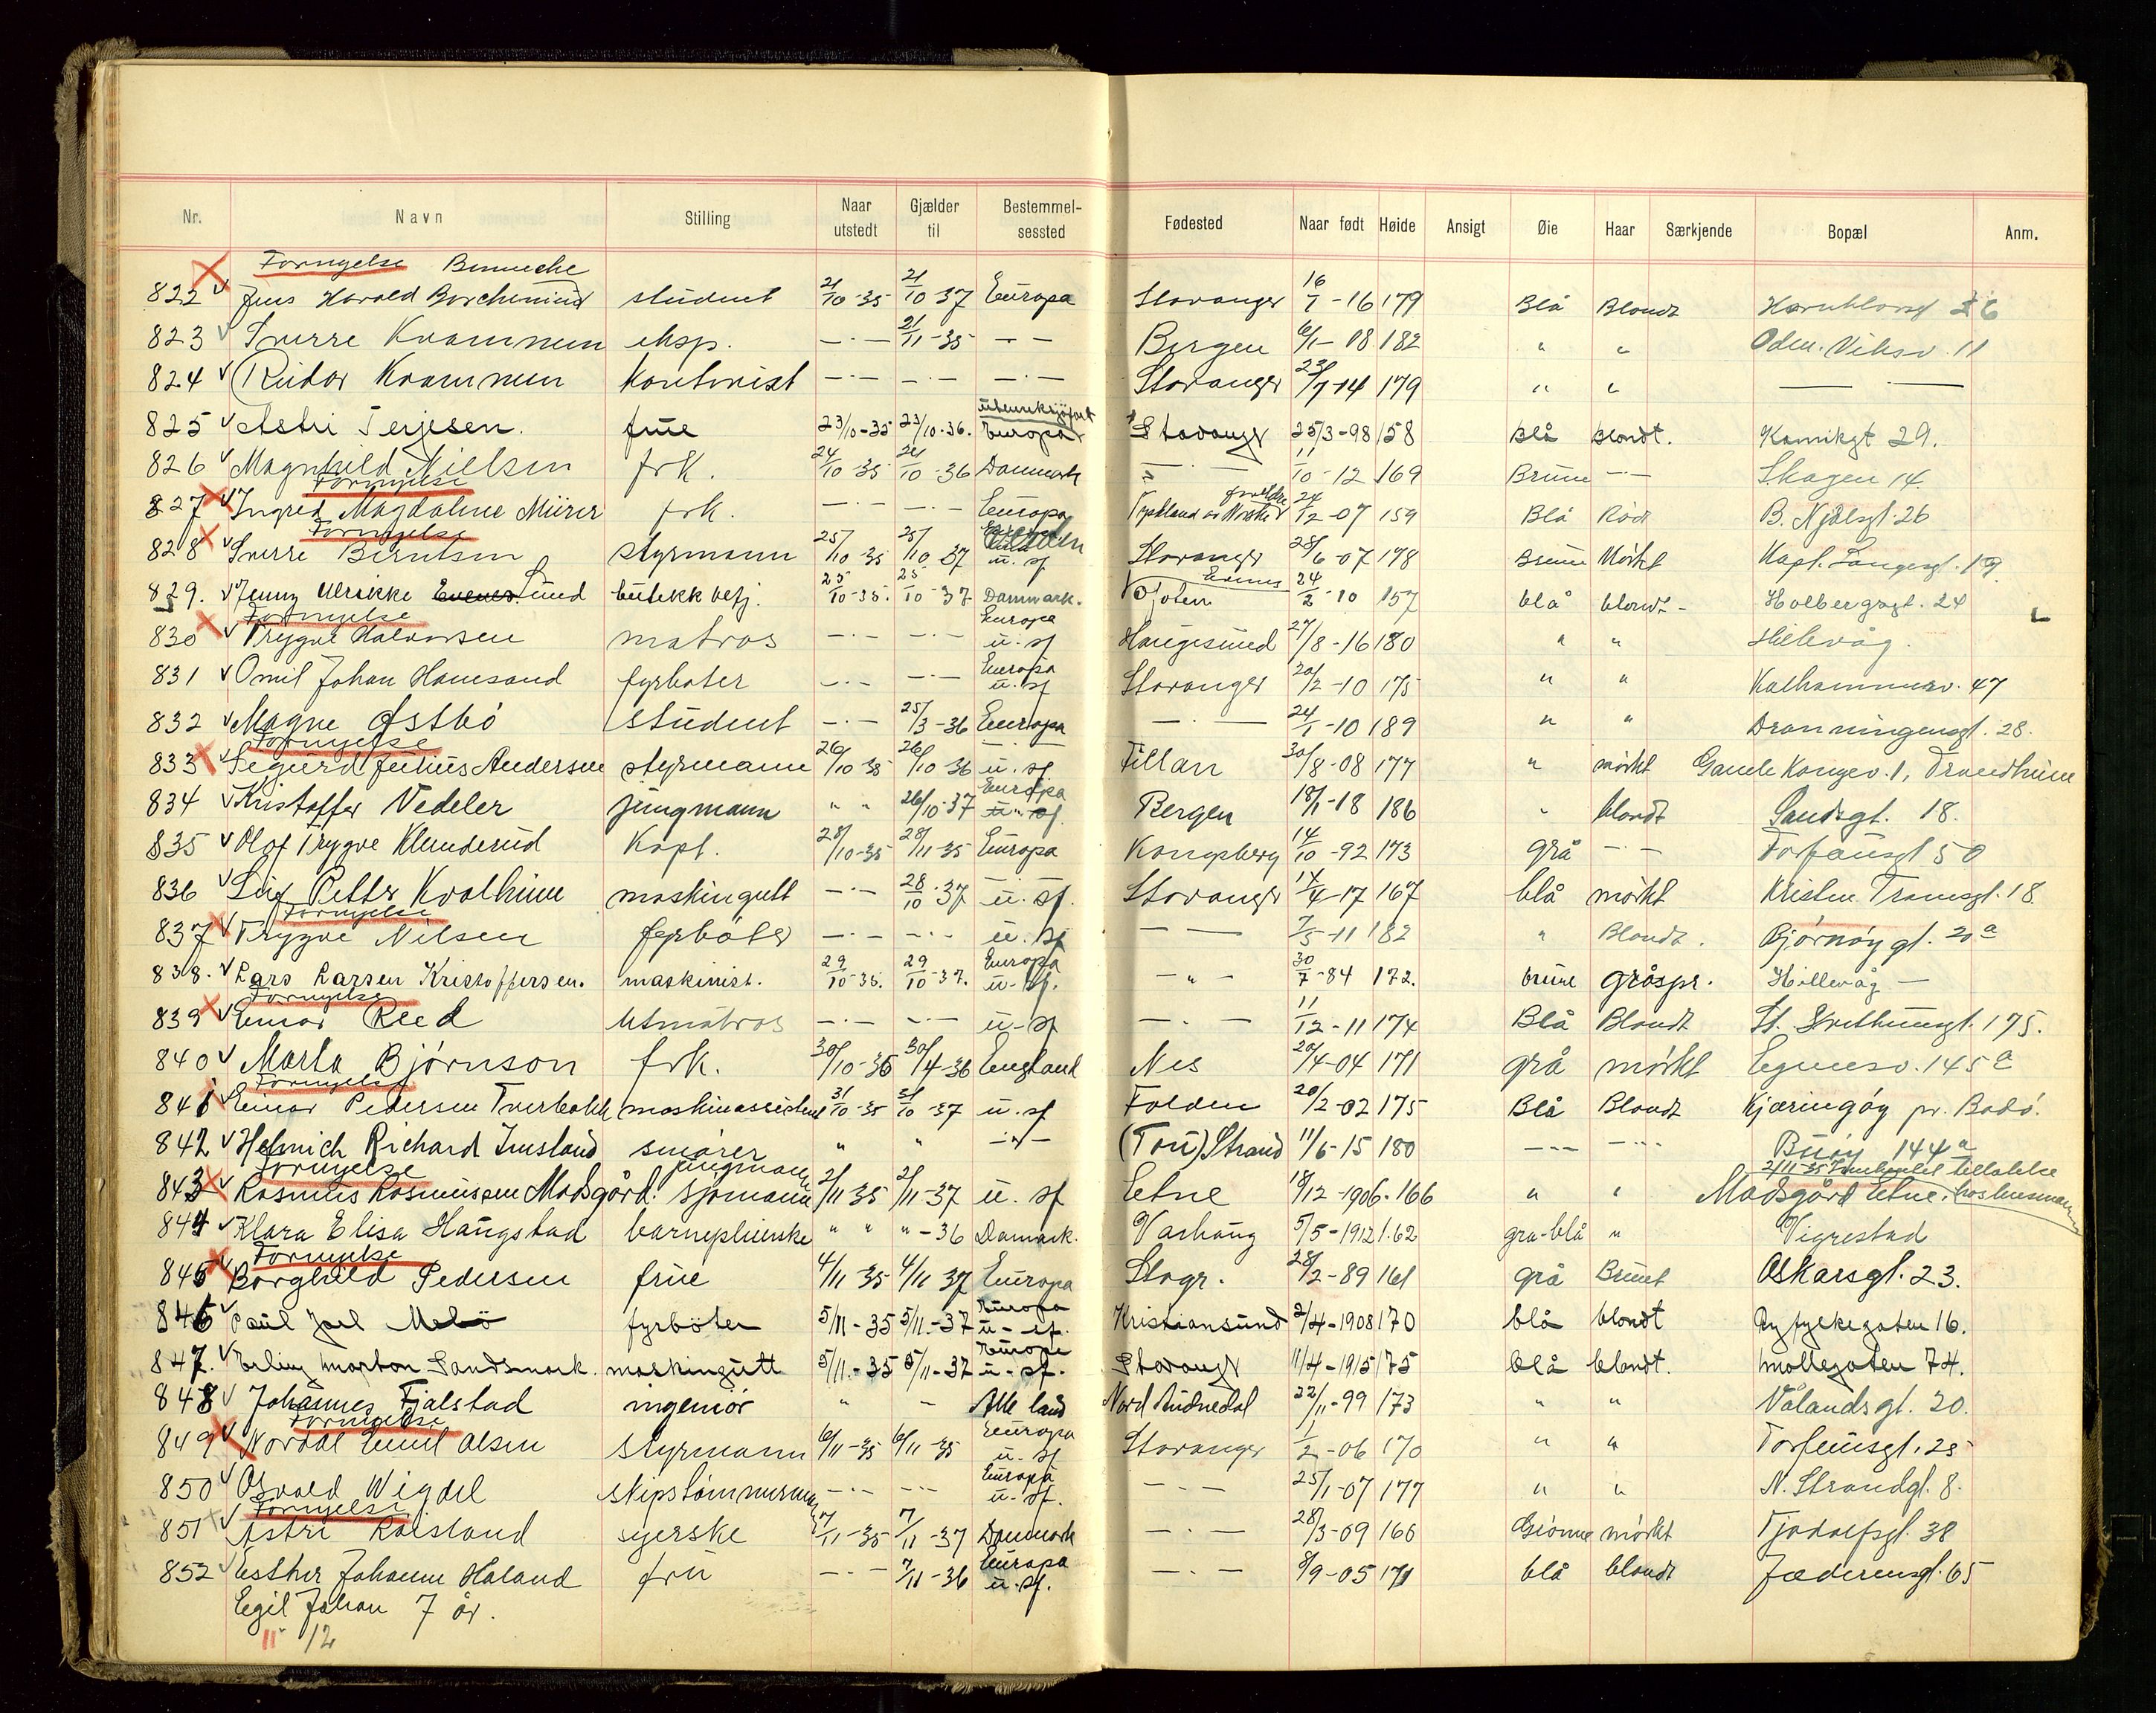 Nr. Navn Stilling Naar utstedt Gjælder til Bestemmelsessted Fødested Naar født Høide Ansigt Øie Haar Særkjende Bopæl Anm.
Fornyelse
822 Jens Harald student 21/10-35 21/10-37 Europa Stavanger 16/7-16 179 Blå Blondt
823 Sverre Kvammen eksp. —·— 21/11-35 — — Bergen 6/1-08 182 " "
824 Reidar Kvammen Kontorist —·— —·— —·— Stavanger 23/7-14 179 " " — —
utenriksjöfart
825 Astri Terjesen. frue 23/10-35 23/10-36. Europa Stavanger 25/3-98 158 Blå blondt. Kannikgt 29.
826 Magnhild Nielsen frk. 24/10-35 24/10-36 Danmark —·— 11/10-12 169 Brune —·— Skagen 14.
Fornyelse
827 Ingred Magdalene frk. —·— —·— Europa Tyskland av Norske foreldre 24/12-07 159 Blå Rød B. Njålsgt. 26
Fornyelse
828 Sverre Berntsen styrmann 25/10-35 25/10-37 u. sf Stavanger 28/6-07 178 Brune Mörkt Kapt. Langesgt. 19.
829. Jenny Ulrikke Lund butikk betj. 25/10-35. 25/10-37 Danmark. 24/2-10 157 blå blondt - Holbergsgt. 24
Fornyelse Europa
830 Trygve Halvorsen matros —·— —·— u. sf Haugesund 27/8-16 180 " " Hillevåg.
Europa
831 Omil Johan Hamsand fyrböter —·— —·— u. sf Stavanger 20/2-10 175 " " Kalhammerv. 47
832 Magne Østbö student —·— 25/3-36 Europa —·— 24/1-10 189 " " Dronningensgt. 28.
Fornyelse
833 Segurd Julius Andersen styrmann 26/10-35 26/10-36 u. sf Fillan 30/8-08 177 " mörkt Gamle Kongev. 1, Trondheim
Europa
834 Kristoffer Vedeler jungmann " " 26/10-37 u. sf. Bergen 18/1-18 186 " blondt Sandsgt. 18.
835 Olof Trygve Klunderud Kapt. 28/10-35 28/11-35 Europa Kongsberg 14/10-92 173 grå —·— Torfæusgt 50
836 Leif Petter Kvalheim maskingutt —·— 28/10-37 u. sf. Stavanger 14/4-17 167 blå mörkt Kristen Transgt. 18.
Fornyelse
837 Trygve Nilsen fyrböter —·— —·— u. sf — — 7/5-11 182 " Blondt. Bjørnøygt. 20a
Europa
838. Lars Larsen Kristoffersen. maskinist. 29/10-35. 29/10-37. u. sf. —"— 30/7-84 172. brune gråspr. Hillevåg —
Fornyelse
839 Einar Reed Utmatros —·— —·— u. sf —·— 11/12-11 174 Blå Blondt St. Svithunsgt. 175.
840 Marta Bjørnson frk. 30/10-35 30/4-36 England Nes 20/4-04 171 grå mörkt 145a
Fornyelse
841 Einar Pedersen Tverbakk maskinassistent 31/10-35 31/10-37 u. sf Folden 20/2-02 175 Blå Blondt Kjæringøy pr. Bodö.
842 Helmich Richard Imsland smører " " —"— (Tou) Strand 11/6-15 180 —·— —·— Buøy 144a
Fornyelse jungmann
843 Rasmus Rasmussen Madsgård. sjömann 2/11-35 2/11-37 u. sf Etne 18/12-1906. 166 " " Madsgård Etne.
844 Klara Elisa Haugstad barnepleierske " " "-36 Damark. Varhaug 5/5-1912 1.62 gra-blå " Vigrestad
Fornyelse
845 Borghild Pedersen frue 4/11-35 4/11-37 Europa Stvgr. 28/2-89 161 grå Brunt Oskarsgt. 23.
Europa
846 Paul Jarl Melbö fyrböter 5/11-35 5/11-37 u. sf. Kristiansund 2/4-1908 170 blå blondt Ryfylkegaten 16.
Europa
847. Erling Morton Sandsmark. maskingutt 5/11-35 5/11-37 u. sf. Stavanger 11/4-1915 175 blå blondt. Møllegaten 74.
848 Johannes Fjalstad ingeniör " — Alle land Nord Audnedal 22/11-99 173 " " Vålandsgt. 20.
Fornyelse Europa
849 Nordal Emil Olsen styrmann 6/11-35 6/11-35 u. sf Stavanger 1/2-06 170 " " Torfeusgt. 25
Europa
850 Osvald Wigdel skipstømmermann —·— —·— u. sf. —·— 25/1-07 177 " " N. Strandgt. 8.
Fornyelse
851 Astri syerske 7/11-35 7/11-37 Danmark —·— 28/3-09 166 mörkt Tjodolfsgt. 38
Europa
852 Esther Johanne Haland fru —·— 7/11-36 u. sf. —·— 8/9-05 171 blå blondt Jæderensgt. 65
Egil Johan 7 år.
11 12